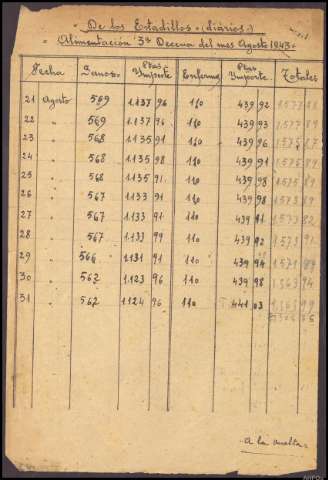 De los Estadillos (diarios)
Alimentación 3ª Decena del mes Agosto 1943.
Fecha Sanos Ptas Importe Enfermos Ptas Importe Totales
21 Agosto 569 1.137 96 110 439 92 1.577 88
22 " 569 1.137 96 110 439 93 1.577 89
23 " 568 1.135 91 110 439 96 1.575 87
24 " 568 1.135 98 110 439 91 1.575 89
25 " 568 1.135 91 110 439 98 1.575 89
26 " 567 1.133 91 110 439 98 1.573 89
27 " 567 1.133 91 110 439 91 1.573 82
28 " 567 1.133 99 110 439 92 1.573 91
29 " 566 1.131 91 110 439 94 1.571
30 " 562 1.123 96 110 439 98 1.563 94
31 " 562 1.124 96 110 441 03 1.565 99
A la vuelta